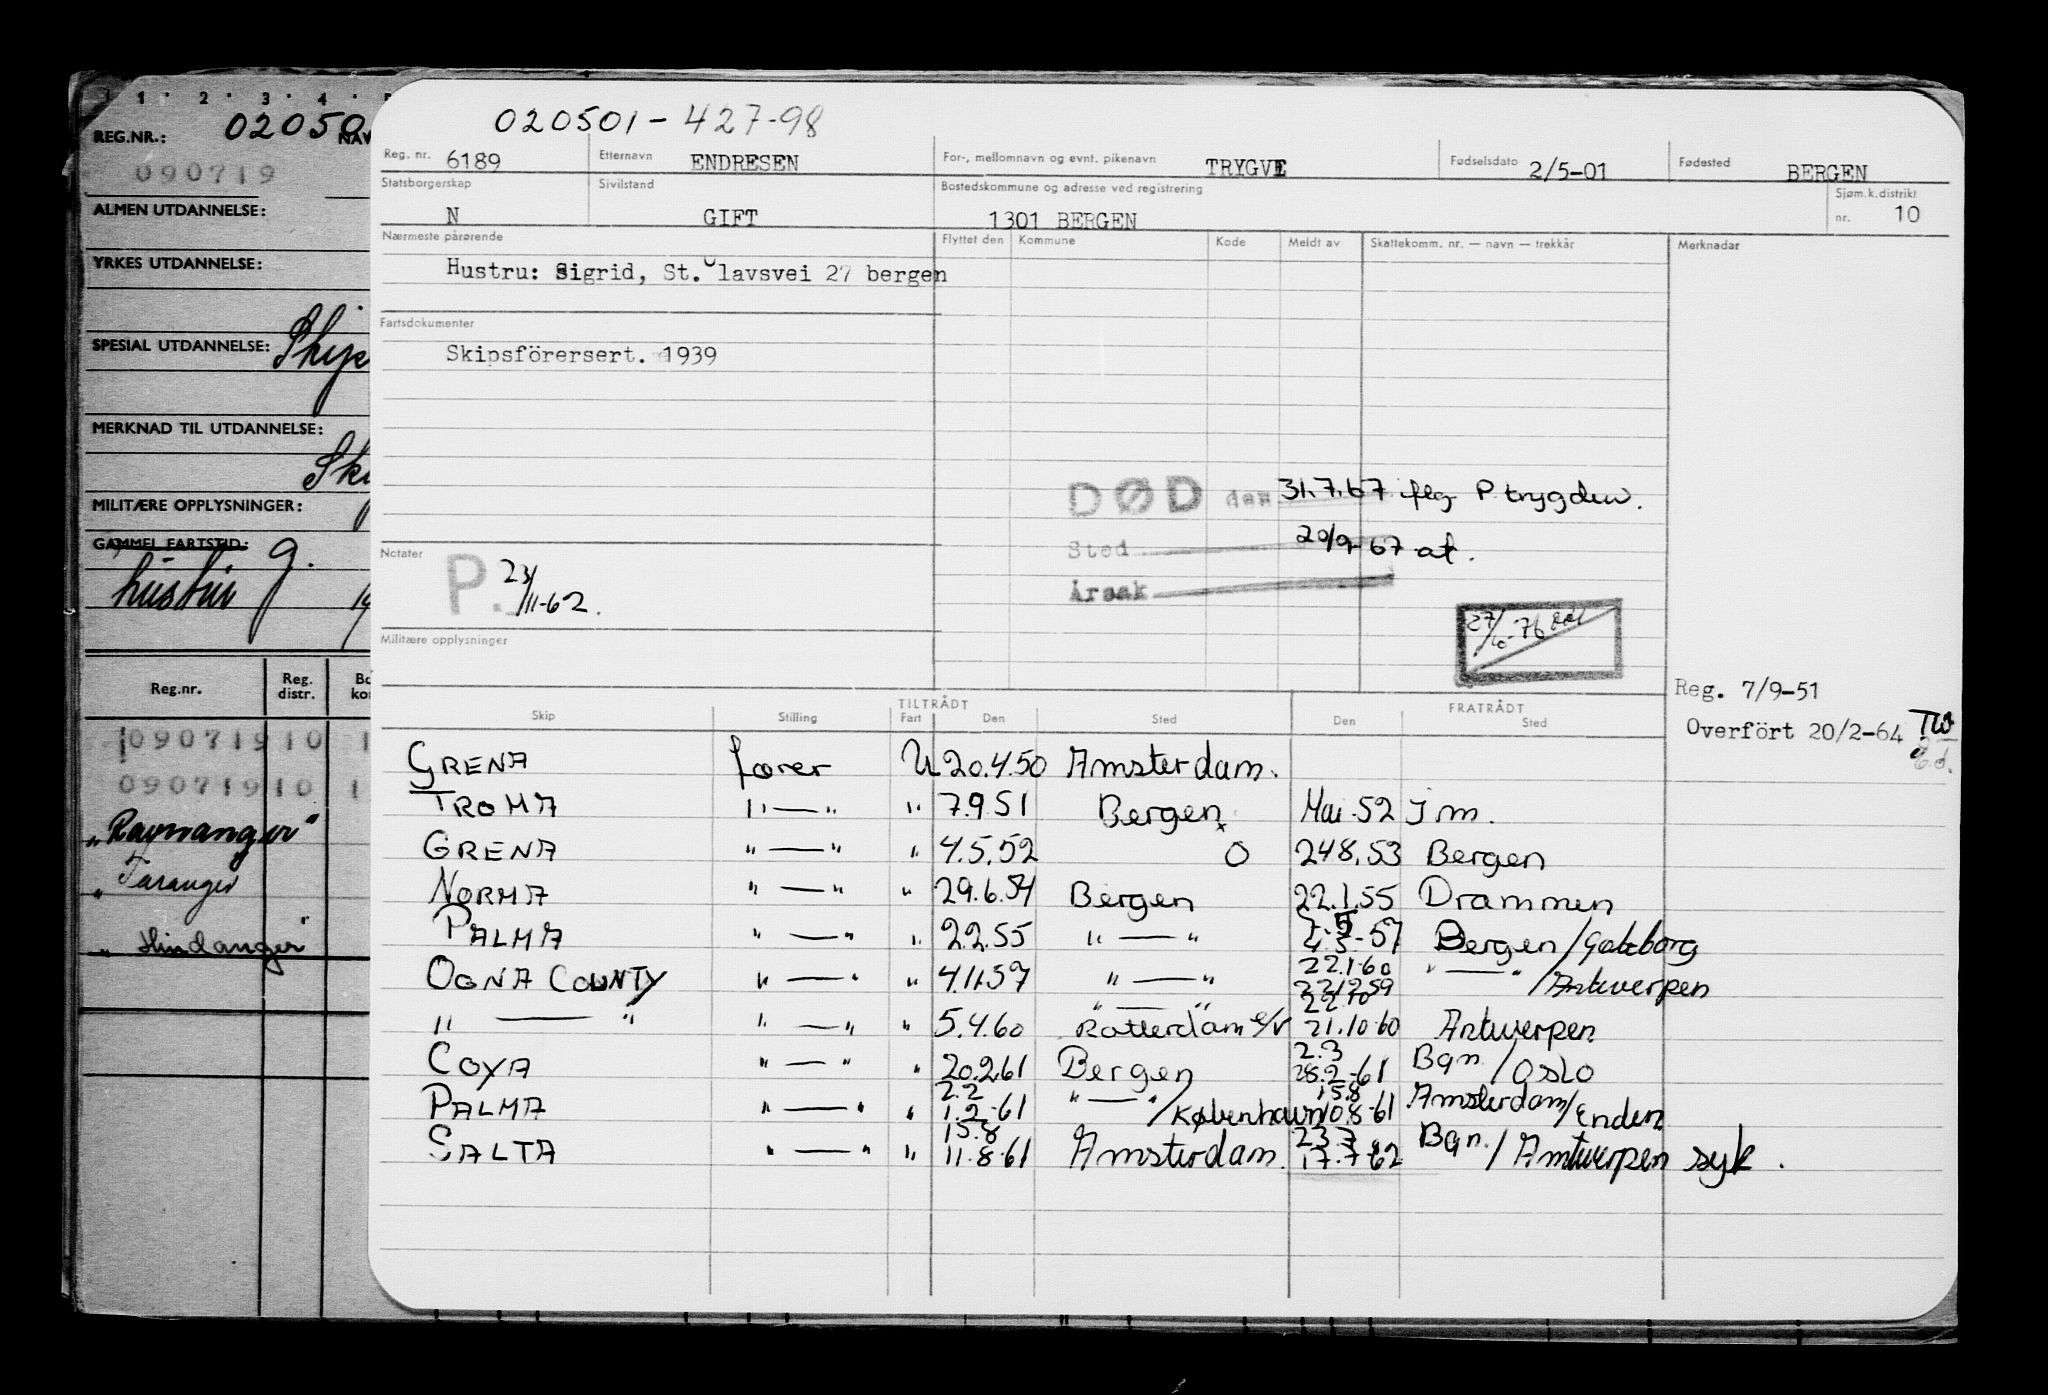 1 · 2 · 3 · 4 ·
REG.NR.: 02050 NAV
090719
ALMEN UTDANNELSE:
YRKES UTDANNELSE:
SPESIAL UTDANNELSE:
MERKNAD TIL UTDANNELSE:
MILITÆRE OPPLYSNINGER:
GAMMEL FARTSTID:
Reg.nr. Reg. distr.
090719 10 1
090719 10 1
"Ravnanger"
" Taranger
" Hindanger"
020501-427-98
Reg. nr. 6189 Etternavn ENDRESEN For-, mellomnavn og evnt. pikenavn TRYGVE Fødselsdato 2/5-01 Fødested BERGEN
Statsborgerskap Sivilstand Bostedskommune og adresse ved registrering Sjøm.k.distrikt
N GIFT 1301 BERGEN nr. 10
Nærmeste pårørende Flyttet den Kommune Kode Meldt av Skattekomm. nr. — navn — trekkår Merknadar
Hustru: Sigrid, St. Olavsvei 27 bergen
Fartsdokumenter
Skipsförersert. 1939
DØD den 31.7.67 flg P trygden.
Sted 20/9-67 at.
Årsak
Notater
P. 23/11-62.
27/10-76
Militære opplysninger
Reg. 7/9-51
Overfört 20/2-64
TILTRÅDT FRATRÅDT
Skip Stilling Fart Den Sted Den Sted
GRENA fører U 20.4.50 Amsterdam.
TROMA " — " " 7.9.51 Bergen Mai.52 I m.
GRENA " — " " 4.5.52 O 24.8.53 Bergen
NORMA " — " " 29.6.54 Bergen 22.1.55 Drammen
PALMA " — " " 2.2.55 " — " 4.5-57 Bergen/Gøteborg
OGNA COUNTY " — " " 4.11.57 " — " 22.1.60 22.12.59 " — " /Antwerpen
" — " " — " " 5.4.60 " — " Rotterdam e/v 22.10 21.10.60 Antwerpen
COYA " — " " 20.2.61 Bergen 2.3 28.2-61 Bgn./Oslo
PALMA " — " " 2.2 1.2-61 " — " /København 15.8 10.8-61 Amsterdam/Enden
SALTA " — " " 15.8 11.8.61 Amsterdam. 23.7 17.7-62 Bgn./Antwerpen syk.